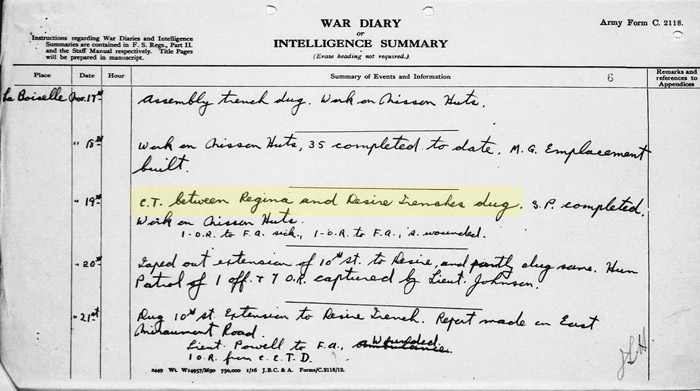 Army Form C. 2118.
WAR DIARY
or
INTELLIGENCE SUMMARY
(Erase heading not required.)
Instructions regarding War Diaries and Intelligence
Summaries are contained in F. S. Regs., Part II.
and the Staff Manual respectively. Title Pages
will be prepared in manuscript.
Place Date Hour Summary of Events and Information 6 Remarks and references to Appendices
La Boiselle Nov. 17th Assembly trench dug. Work on Nisson Huts.
" 18th Work on Nisson Huts, 35 completed to date. M.G. Emplacement
built.
" 19th C.T. between Regina and Desire Trenches dug. S.P. completed.
Work on Nisson Huts.
1-O.R. to F.A. sick, 1-O.R. to F.A., wounded.
" 20th Taped out extension of 10th St. to Desire, and partly dug same. Hun
Patrol of 1 off. + 7 O.R. captured by Lieut. Johnson.
" 21st Dug 10th St. Extension to Desire Trench. Report made on East
Miraumont Road.
Lieut. Powell to F.A., Wounded.
1 O.R. from C.C.T.D.
2449 Wt. W14957/M90 750,000 1/16 J.B.C. & A. Forms/C.2118/12.